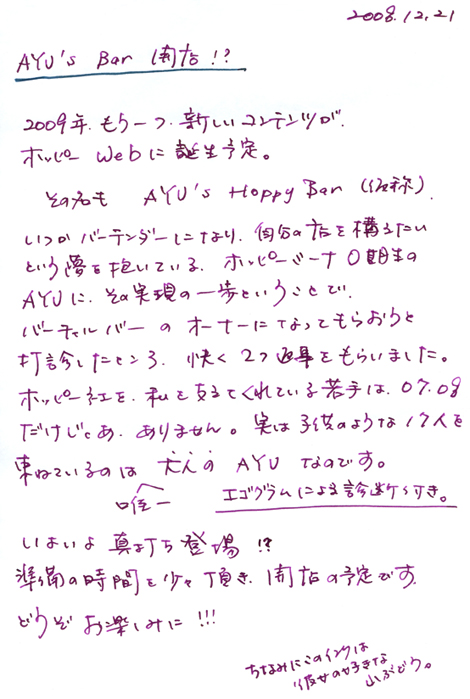 2008.12.21
AYU's Bar 開店!?
2009年、もう一つ、新しいコンテンツが、
ホッピーWebに誕生予定。
その名も AYU's Hoppy Bar (仮称)
いつかバーテンダーになり、自分の店を構えたい
という夢を抱いている、ホッピーミーナ0期生の
AYUに、その実現の一歩ということで、
バーチャルバーのオーナーになってもらおうと
打診したところ、快く2つ返事をもらいました。
ホッピー社を、私を支えてくれている若手は、07.08
だけじゃあ、ありません。実は子供のような17人を
束ねているのは 大人の AYU なのです。
唯一 エゴグラムによる診断ケッカ。
いよいよ真打ち登場!?
準備の時間を少々頂き、開店の予定です。
どうぞお楽しみに!!!
ちなみにこのインクは
彼女の好きな
山ぶどう。